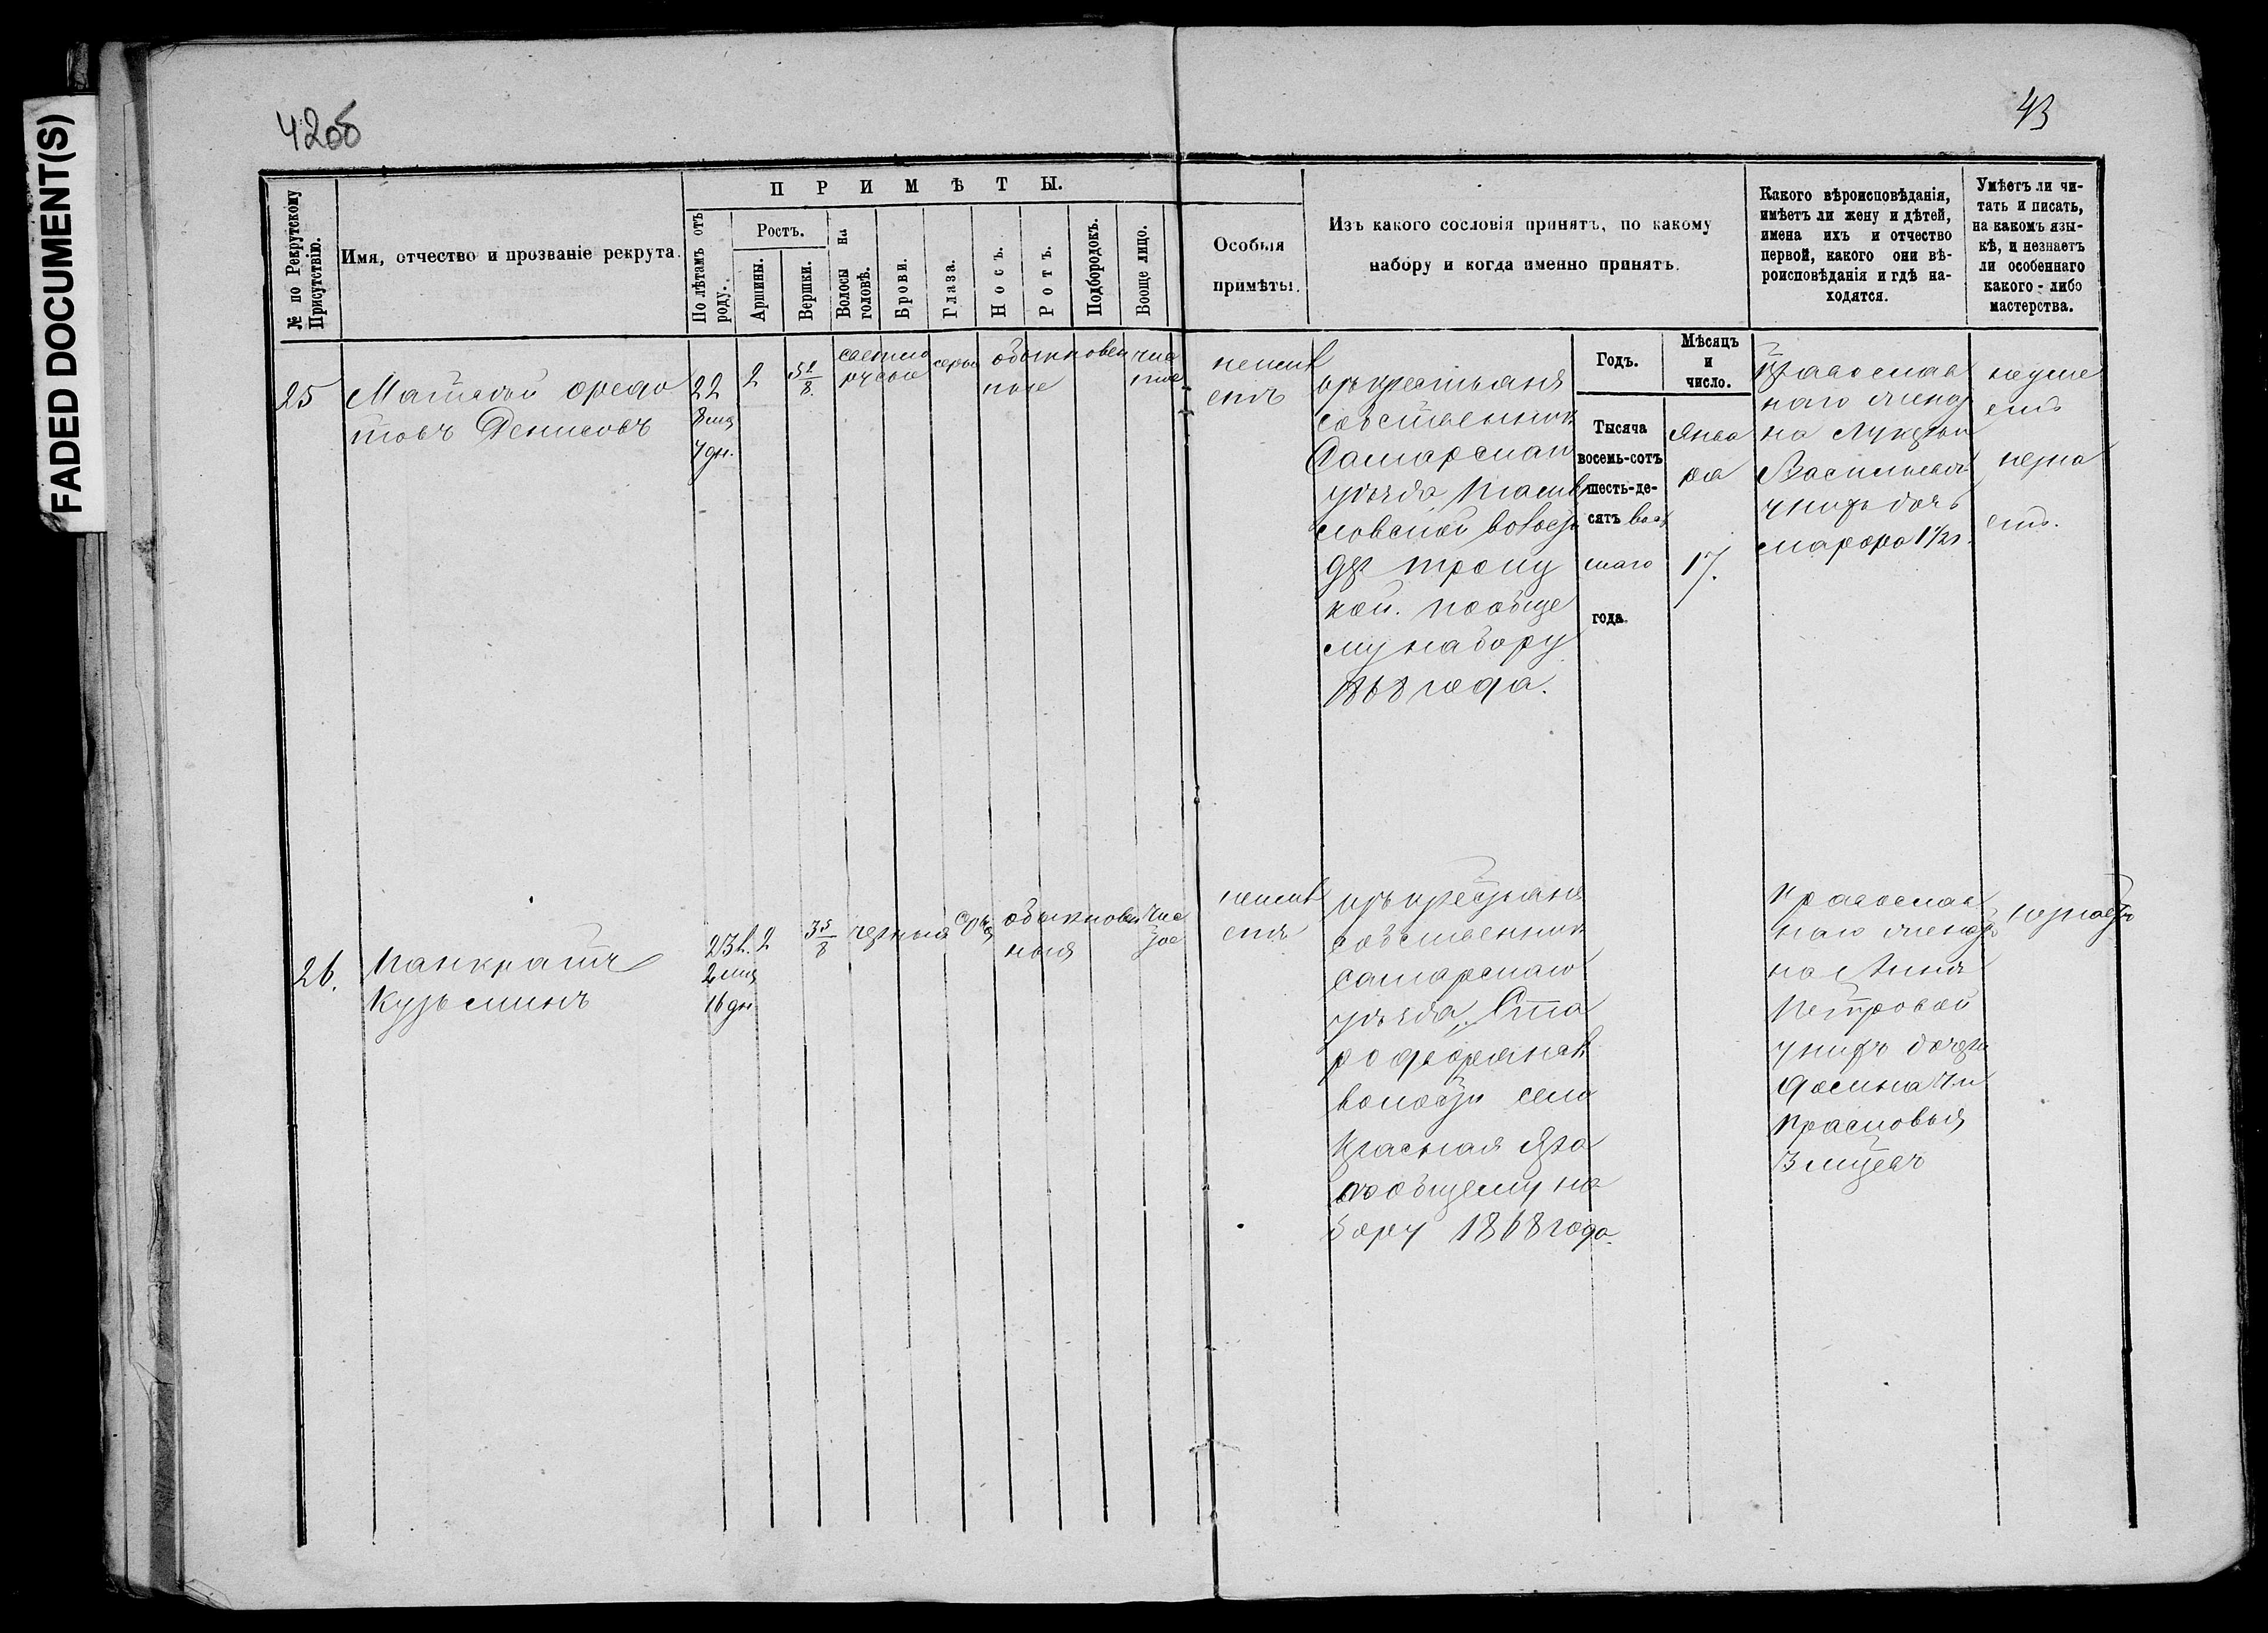 FADED DOCUMENT(S)
42об
43
№ по Рекрутскому Присутствію.
Имя, отчество и прозваніе рекрута.
ПРИМѢТЫ.
По лѣтамъ отъ роду.
Ростъ.
Аршины.
Вершки.
Волосы на головѣ.
Брови.
Глаза.
Носъ.
Ротъ.
Подбородокъ.
Вооще лицо.
Особыя
примѣты.
Изъ какого сословія принятъ, по какому
набору и когда именно принятъ.
Какого вѣроисповѣданія,
имѣетъ ли жену и дѣтей,
имена ихъ и отчество
первой, какого они вѣ-
роисповѣданія и гдѣ на-
ходятся.
Умѣетъ ли чи-
тать и писать,
на какомъ язы-
кѣ, и незнаетъ
ли особеннаго
какого-либо
мастерства.
25
Матвей
Денисовъ
22
8 мц
7 дн.
2
5 2/8
светло
русые
серые
обыкновен
ные
чис
тое
неимѣ
етъ
изъ крестьянъ
собственник
Самарскаго
уѣзда
волости
дер Троиц
кой. пообще
му набору
1868 года.
Годъ.
Тысяча
восемь-сотъ
шесть-де-
сятъ вось
маго
года.
Мѣсяцъ
и
число.
Янва
ря
17.
Православ
наго женат
на Лукерьи
Васильевой
у нихъ дочь
1 1/2 г.
неуме
етъ
незна
етъ.
26.
Панкратъ
Кузьминъ
23 л.
2 мц
16 дн
2
3 5/8
черныя
серыя
обыкновен
ныя
чис
тое
неимѣ
етъ
изъ крестьянъ
собственник
Самарскаго
уѣзда Ста
волости села
Красная
пообщему на
бору 1868 года.
Православ
наго женатъ
на Аннѣ
Петровой
у нихъ дочери
Прасковья
3 мцевъ
незнаетъ